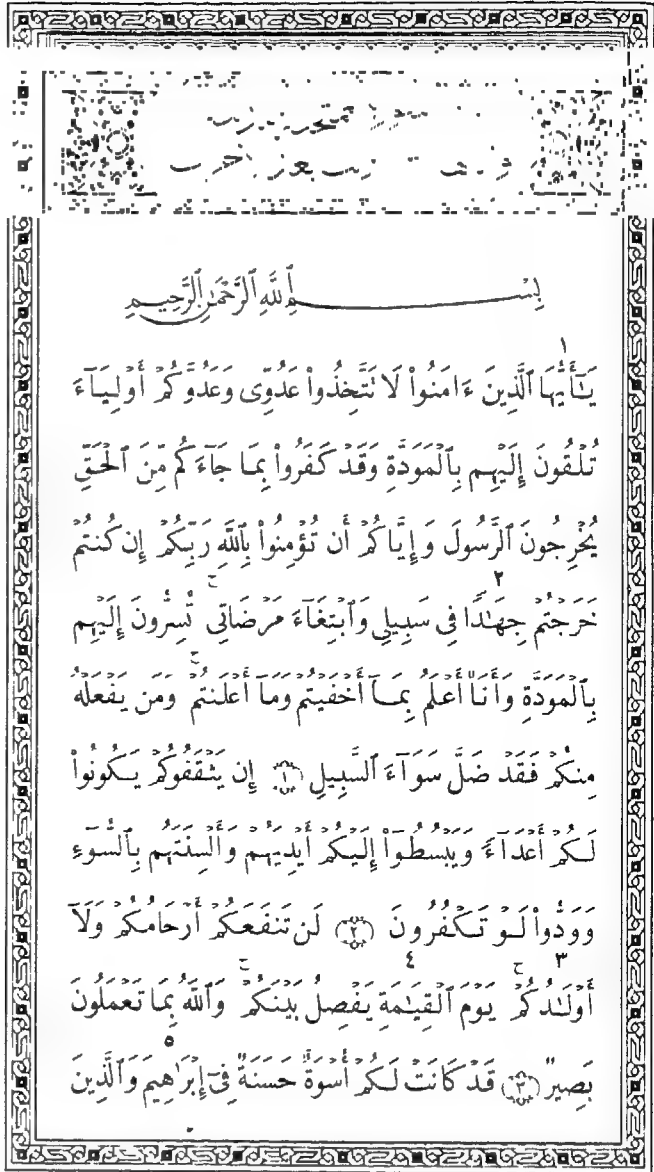 بِسْمِ ٱللَّهِ ٱلرَّحْمَٰنِ ٱلرَّحِيمِ
١
يَـٰٓأَيُّهَا ٱلَّذِينَ ءَامَنُوا۟ لَا تَتَّخِذُوا۟ عَدُوِّى وَعَدُوَّكُمْ أَوْلِيَآءَ
تُلْقُونَ إِلَيْهِم بِٱلْمَوَدَّةِ وَقَدْ كَفَرُوا۟ بِمَا جَآءَكُم مِّنَ ٱلْحَقِّ
يُخْرِجُونَ ٱلرَّسُولَ وَإِيَّاكُمْ أَن تُؤْمِنُوا۟ بِٱللَّهِ رَبِّكُمْ إِن كُنتُمْ
٢
خَرَجْتُمْ جِهَـٰدًا فِى سَبِيلِى وَٱبْتِغَآءَ مَرْضَاتِى ۚ تُسِرُّونَ إِلَيْهِم
بِٱلْمَوَدَّةِ وَأَنَا۠ أَعْلَمُ بِمَآ أَخْفَيْتُمْ وَمَآ أَعْلَنتُمْ ۚ وَمَن يَفْعَلْهُ
مِنكُمْ فَقَدْ ضَلَّ سَوَآءَ ٱلسَّبِيلِ ١ إِن يَثْقَفُوكُمْ يَكُونُوا۟
لَكُمْ أَعْدَآءً وَيَبْسُطُوٓا۟ إِلَيْكُمْ أَيْدِيَهُمْ وَأَلْسِنَتَهُم بِٱلسُّوٓءِ
وَوَدُّوا۟ لَوْ تَكْفُرُونَ ٢ لَن تَنفَعَكُمْ أَرْحَامُكُمْ وَلَآ
٣ ٤
أَوْلَـٰدُكُمْ ۚ يَوْمَ ٱلْقِيَـٰمَةِ يَفْصِلُ بَيْنَكُمْ ۚ وَٱللَّهُ بِمَا تَعْمَلُونَ
٥
بَصِيرٌ ٣ قَدْ كَانَتْ لَكُمْ أُسْوَةٌ حَسَنَةٌ فِىٓ إِبْرَٰهِيمَ وَٱلَّذِينَ